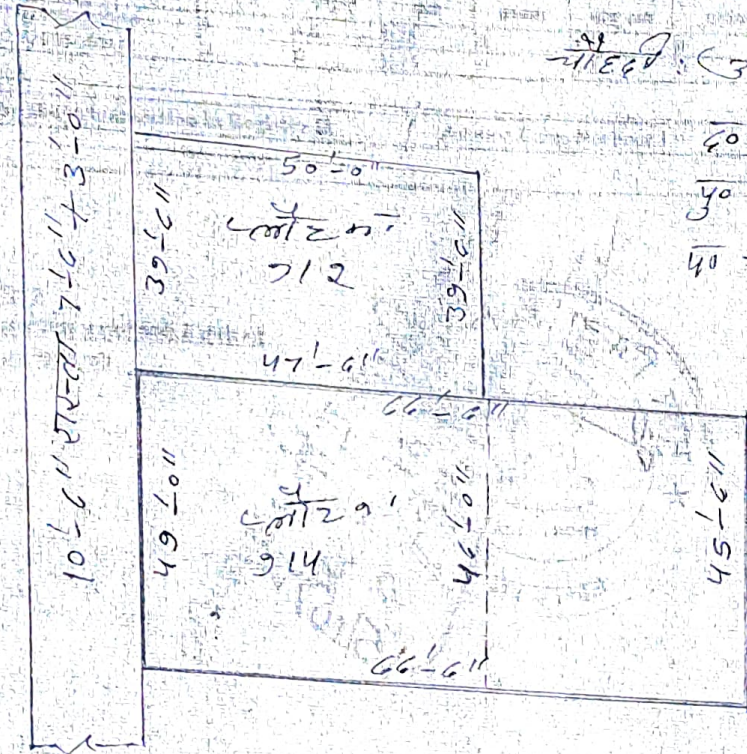 10'-6" रास्ता 7'-6" + 3'-0"
50'-0"
39'-6"
प्लौट नं.
912
39'-6"
47'-6"
66'-6"
49'-0"
प्लौट नं
914
46'-0"
45'-6"
66'-6"